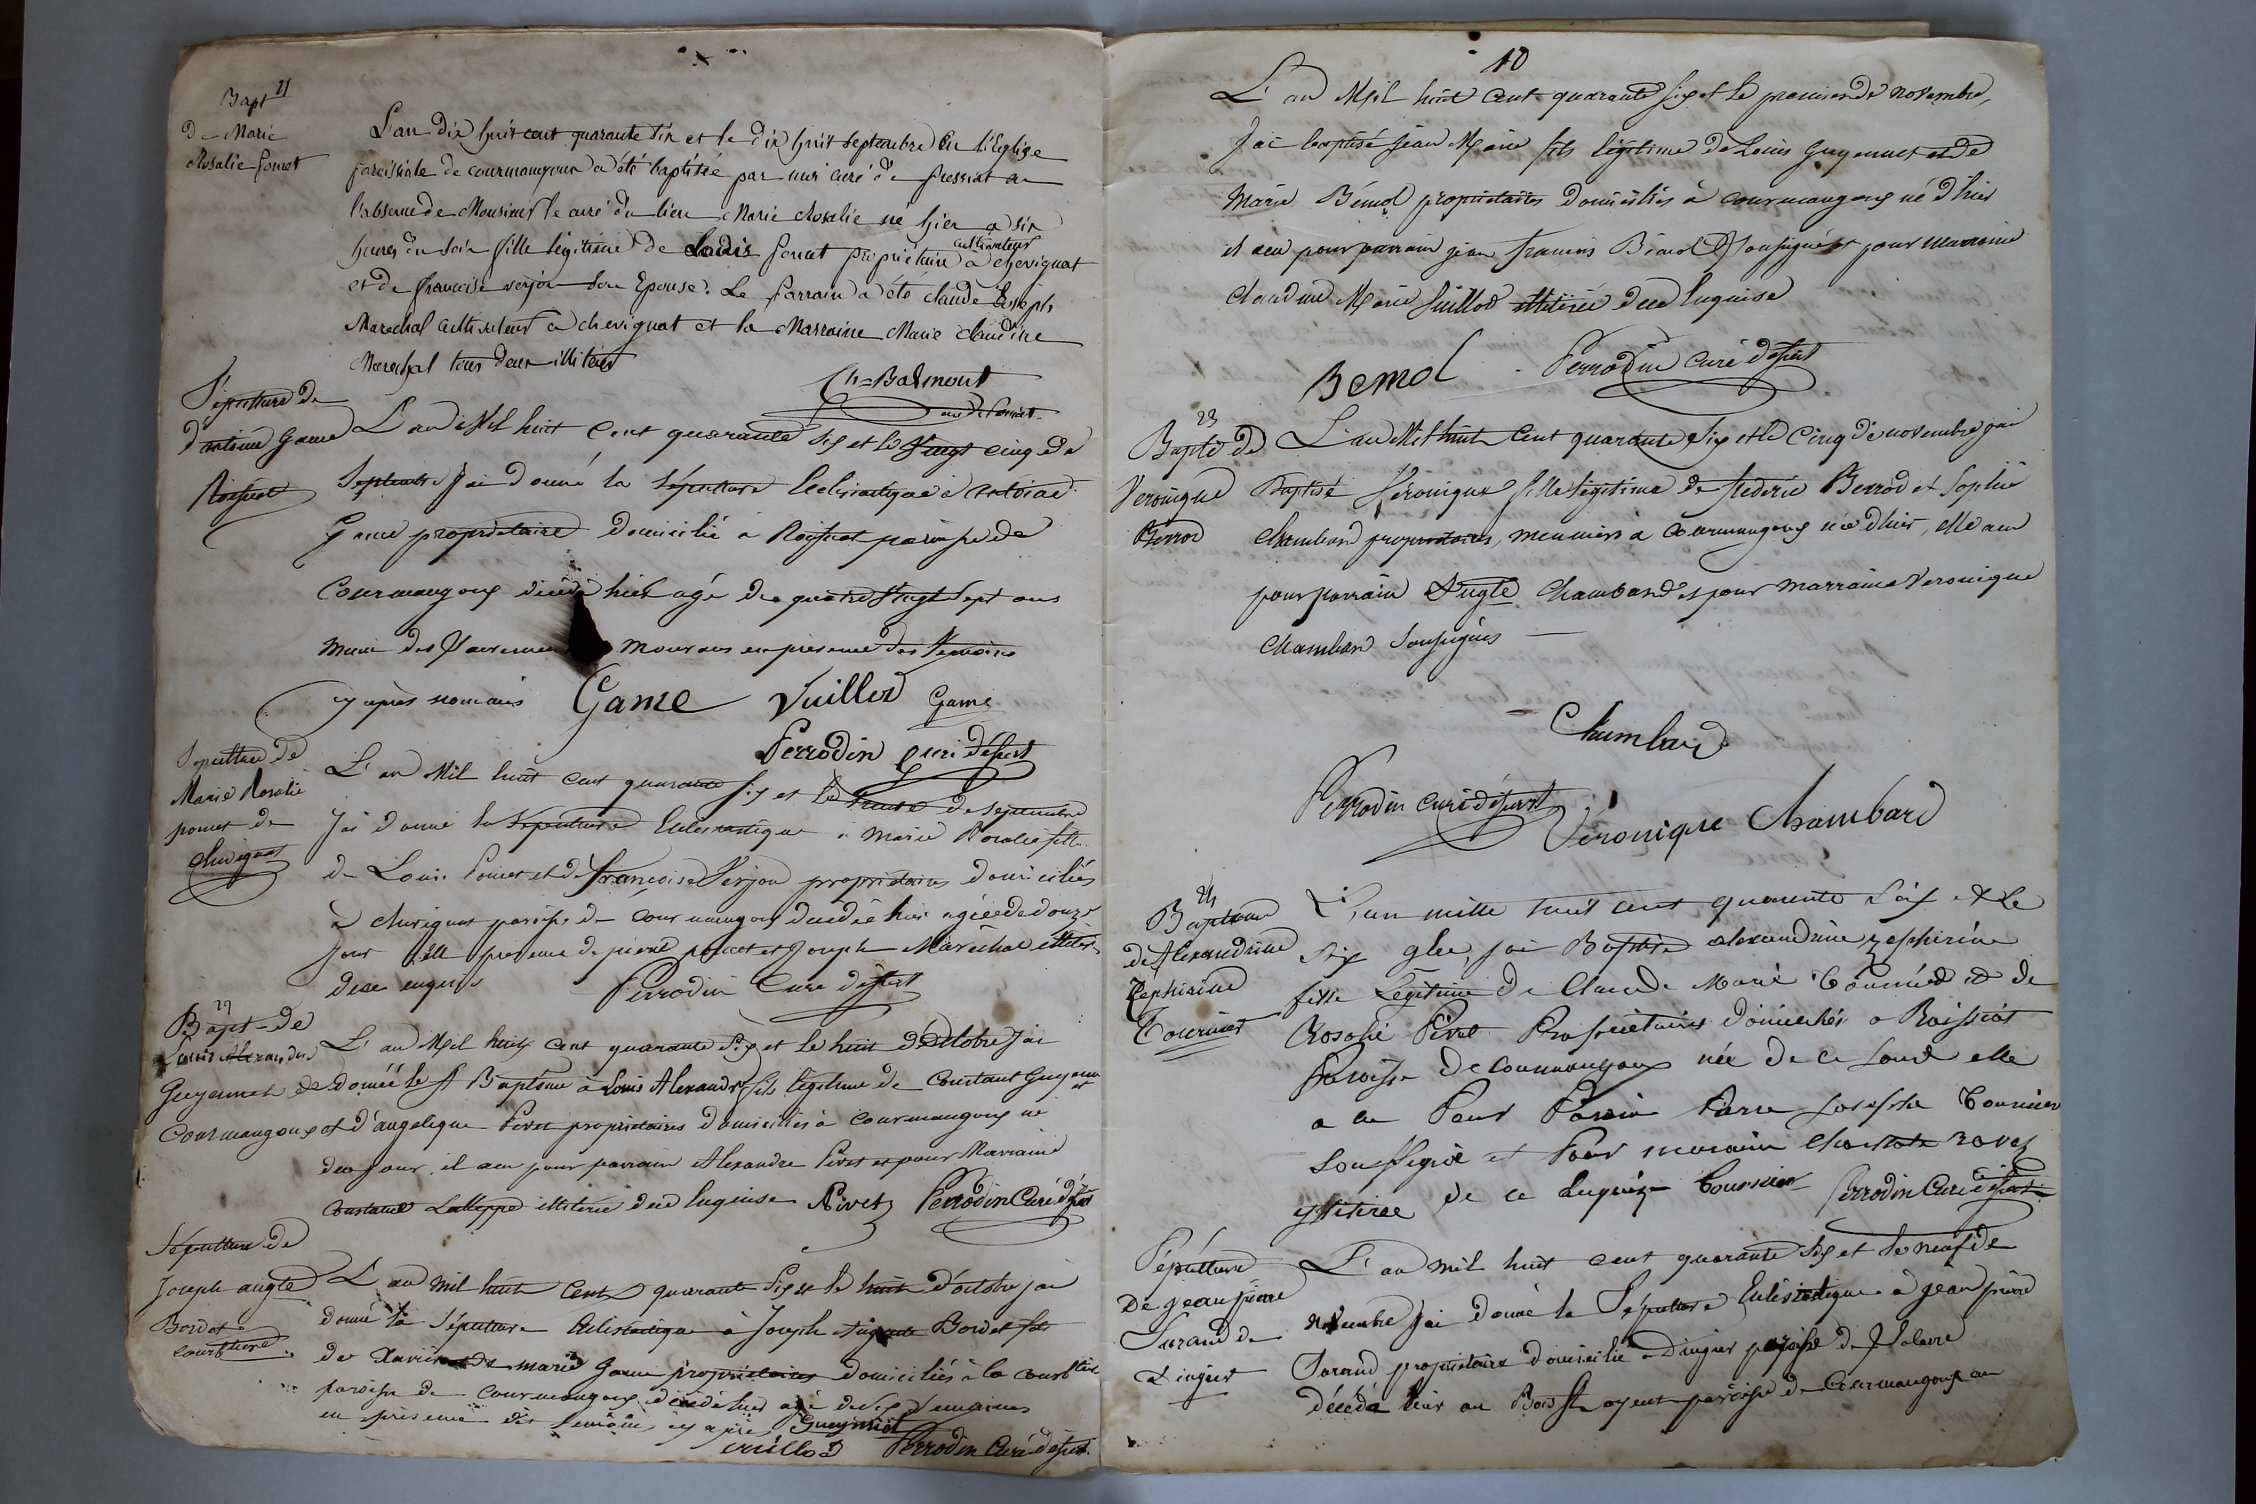 Bapt 21
De Marie
Rosalie Poncet
L'an dix huit cent quarante six et le dix huit septembre en l'Eglise
paroissiale de courmangoux a été baptisée par moi curé de pressiat en
l'absence de Monsieur le curé du lieu Marie Rosalie né hier a six
heures du soir fille légitime de Louis Poncet propriétaire cultivateur a chevignat
et de francoise verjon son Epouse. Le Parrain a été claude Joseph
Marechal cultivateur a chevignat et la Marraine Marie claudine
Marechal tous deux illitérés
Ch. Balmont
Sépulture de
d'antoine Game
Roissiat
L'an Mil huit Cent quarante six et le Vingt cinq de
Septembre J'ai donné la Sépulture Ecclésiastique à Antoine
Game propriétaire domicilié à Roissiat paroisse de
Courmangoux décédé hier agé de quatre Vingt Sept ans
muni des Sacremens mourans en présence des temoins
cy après nommés Game Vuillod Game
Perrodin curé désert
Sepulture de
Marie Rosalie
poncet de
chevignat
L'an Mil huit cent quarante six et le trente de septembre
J'ai donné la Sépulture Ecclesiastique a Marie Rosalie fille
de Louis Poncet et de françoise Verjon propriétaires domiciliés
à chevignat paroisse de courmangoux decedée hier agée de douze
jour en presence de pierre poncet et Joseph Maréchal illiterés
de ce enquis Perrodin Curé désert
22
Bapt de
Louis Alexandre
Guyennet de
Courmangoux
L'an Mil huit cent quarante Six et le huit d'octobre J'ai
donné le St Baptême à Louis Alexandre fils légitime de Constant Guyennet
et d'angelique Pivet propriétaires domiciliés à courmangoux né
de ce jour, il a eu pour parrain Alexandre Pivet et pour Marraine
illiterée de ce Enquise Pivet Perrodin Curé désert
Sépulture de
Joseph auguste
Bordet
courbture
L'an mil huit cent quarante Six et le huit d'octobre jai
donné la Sépulture Eclésiastique à Joseph Auguste Bordet fils
de Xavier et de marie Game propriétaires domiciliés à la courbture
paroisse de Courmangoux décédé hier agé de six Semaines
en présence des temoins cy après Gueynnet
vuillod Perrodin Curé désert
10
L'an Mil huit Cent quarante six et le premier de novembre,
J'ai baptisé Jean Marie fils légitime de Louis Guyennet et de
Marie Bémol propriétaires domiciliés à courmangoux né d'hier
il a eu pour parrain jean francois Bémol Soussigné et pour marraine
Claudine Marie Vuillod illitérée de ce Enquise
Bemol Perrodin curé désert
23
Bapte de
Veronique
Berrod
L'an Mil huit Cent quarante Six et le Cinq de novembre jai
Baptisé Véronique fille légitime de frederic Berrod et Sophie
Chambard propriétaires, meuniers à Courmangoux née d'hier, elle a eu
pour parrain Augte Chambard et pour Marraine Veronique
Chambard Soussignés
Chambard
Perrodin curé désert
Véronique Chambard
24
Baptême
de Alexandrine
Zephirine
Tournier
L'an mille huit cent quarante Six et Le
Six 9bre, jai Baptisé alexandrine zephirine
fille Légitime de Claude Marie Tournier et de
Rosalie Pivet Propriétaires domiciliés a Roissiat
Paroisse de Courmangoux née de ce Jour elle
a eu Pour Parrin Pierre Joseph Tournier
Soussigné et Pour marraine Charlote ravet
illitérée de ce Enquise Tournier Perrodin Curé désert
Sépulture
De Jean pierre
L'an mil huit cent quarante Six et le neuf de
novembre J'ai donné la Sépulture Eclésiastique à jean pierre
propriétaire domicilié a Dingier paroisse de
décédé hier au Bois paroisse de Courmangoux en